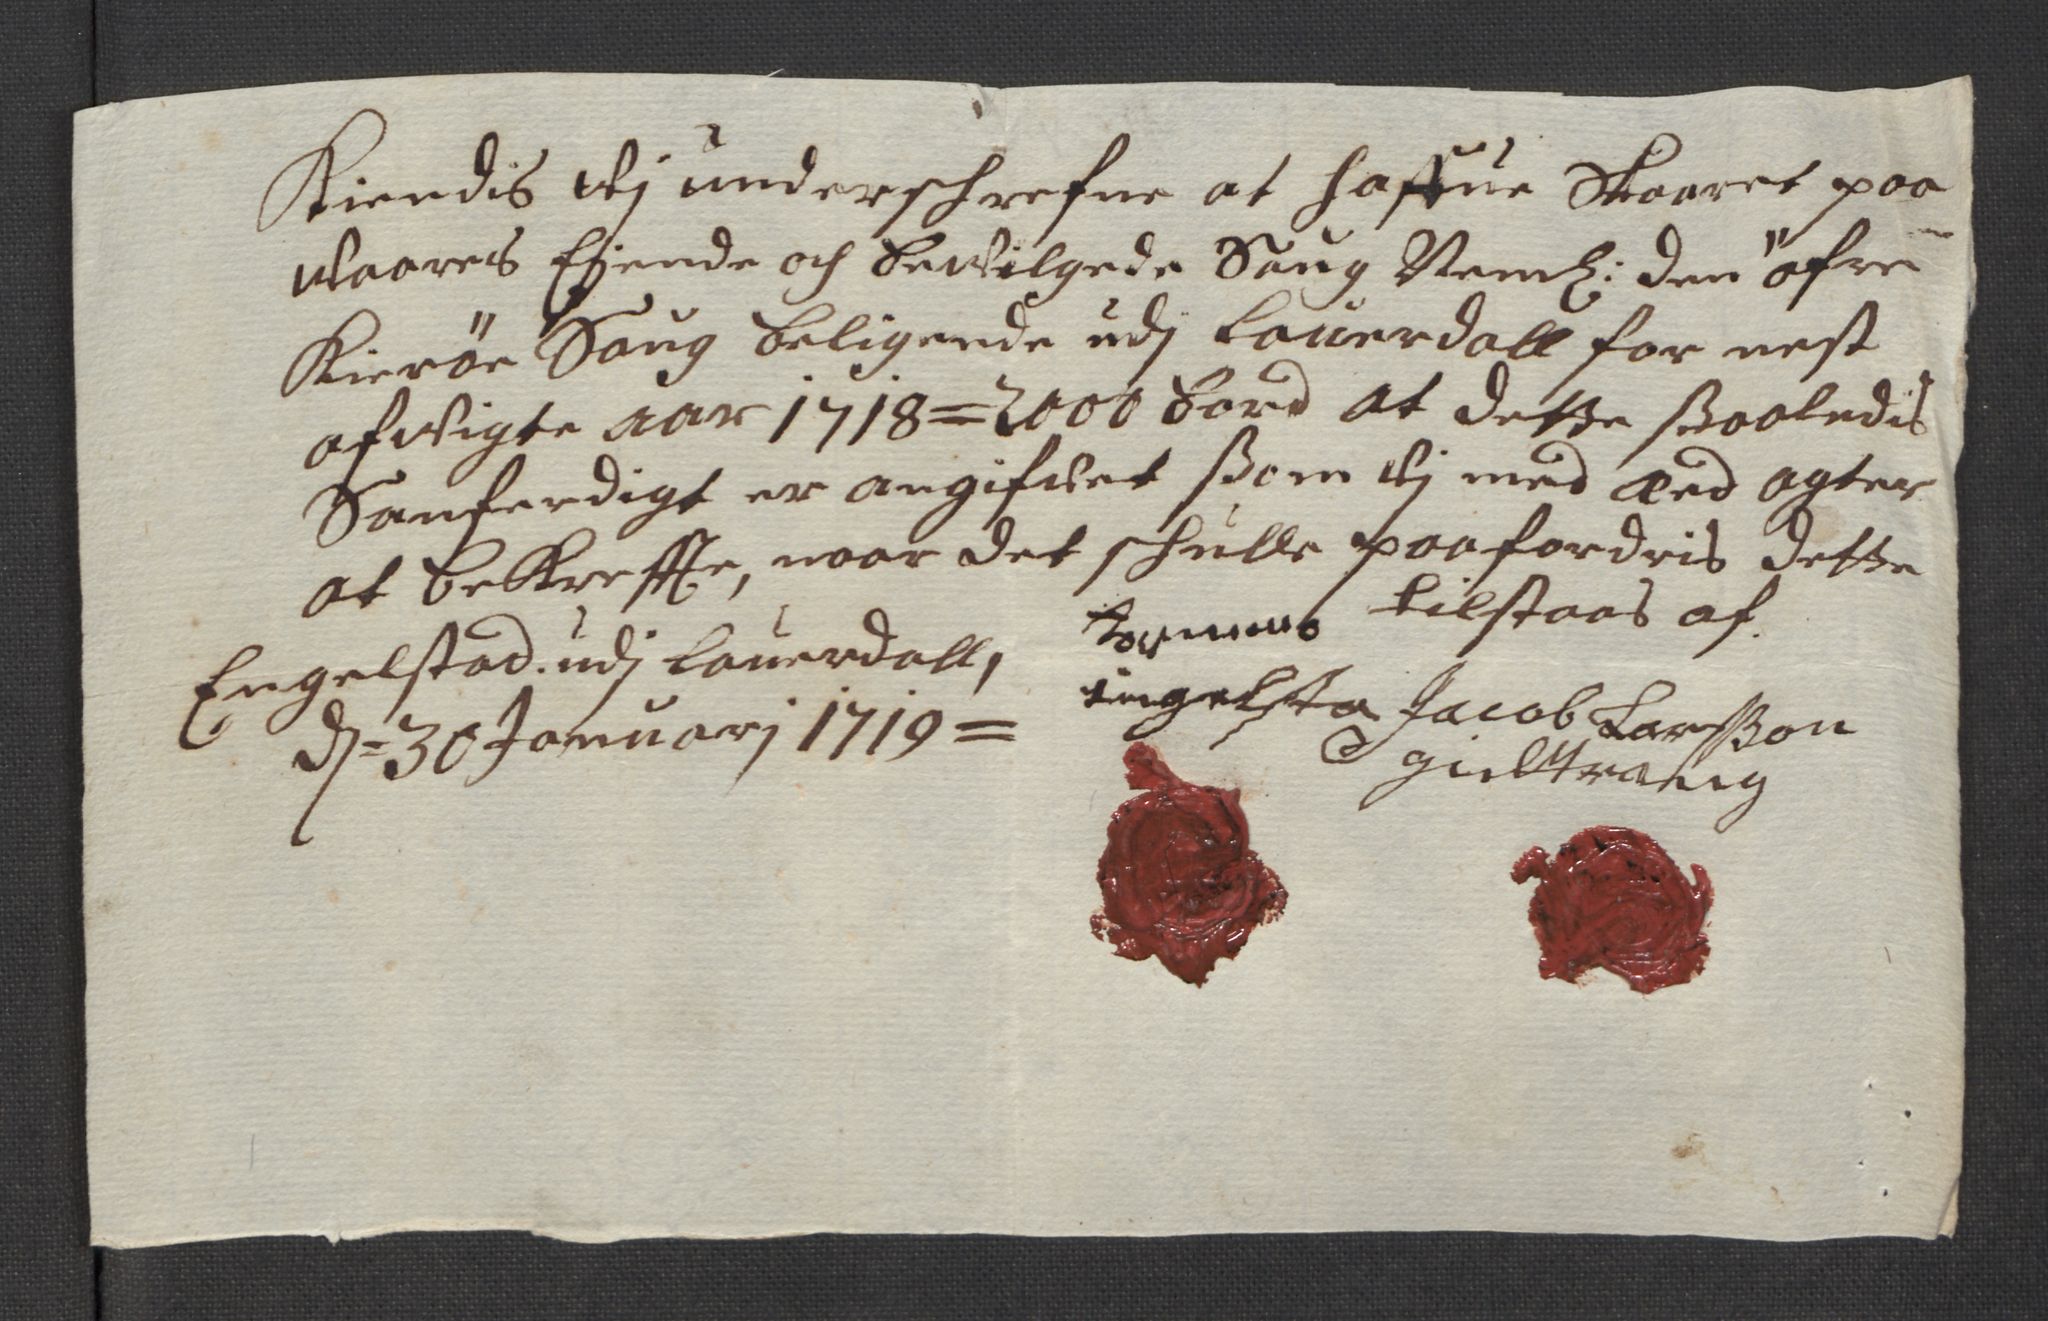 Kiendis Wj underschrefne at haffue Skaaret paa
Waares Eiende och bewilgede Saug Neml: den öfre
Kieröe Saug beligende udj Lauerdall for nest
afwigte aar 1718 = 2000 bord at dette ßaaledis
Sanferdigt er angifwet ßom Wj med æed agter
at bekreffte, naar det schulle paafordris dette
tilstaas af.
Engelstad udj Lauerdall,
dj = 30 Januarj 1719 =
ingelsta
Jacob Larsßon